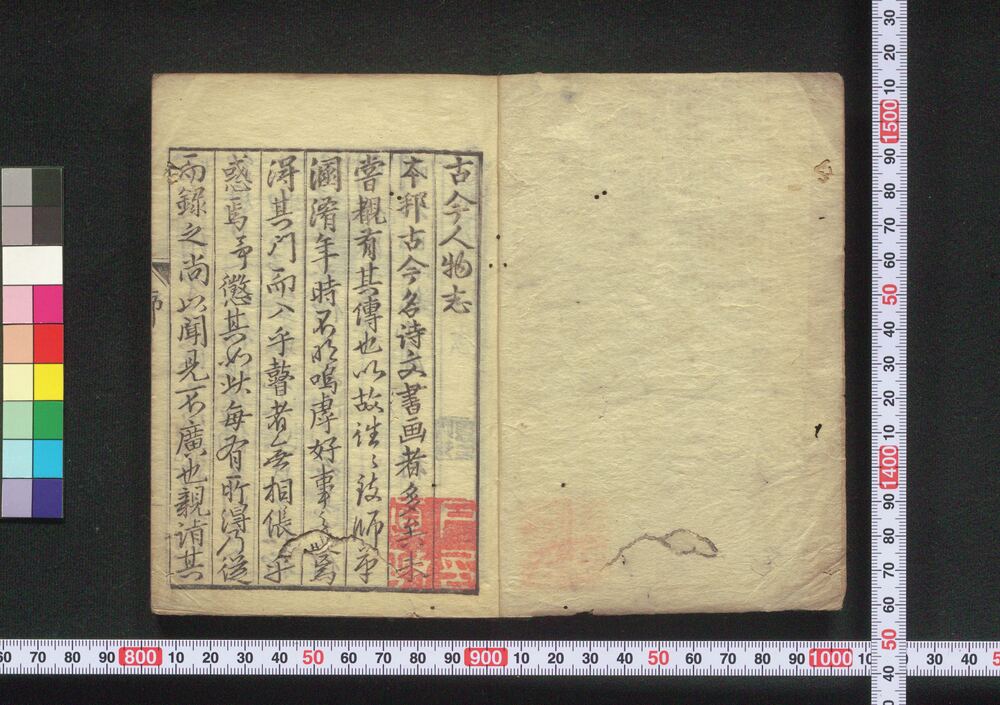 古今人物志
本邦古今名詩文書画者多矣未
嘗觀有其傳也以故往々設師弟
溷淆年時不明嗚虖好事之篤
得其門而入乎瞽者無相倀乎
惑焉予懲其如此每有所得乃從
而録之尚以聞見不廣也親請其
序
30 20 10 1500 90 80 70 60 50 40 30 20 10 1400 90 80 70 60 50 40
60 70 80 90 800 10 20 30 40 50 60 70 80 90 900 10 20 30 40 50 60 70 80 90 1000 10 30 40